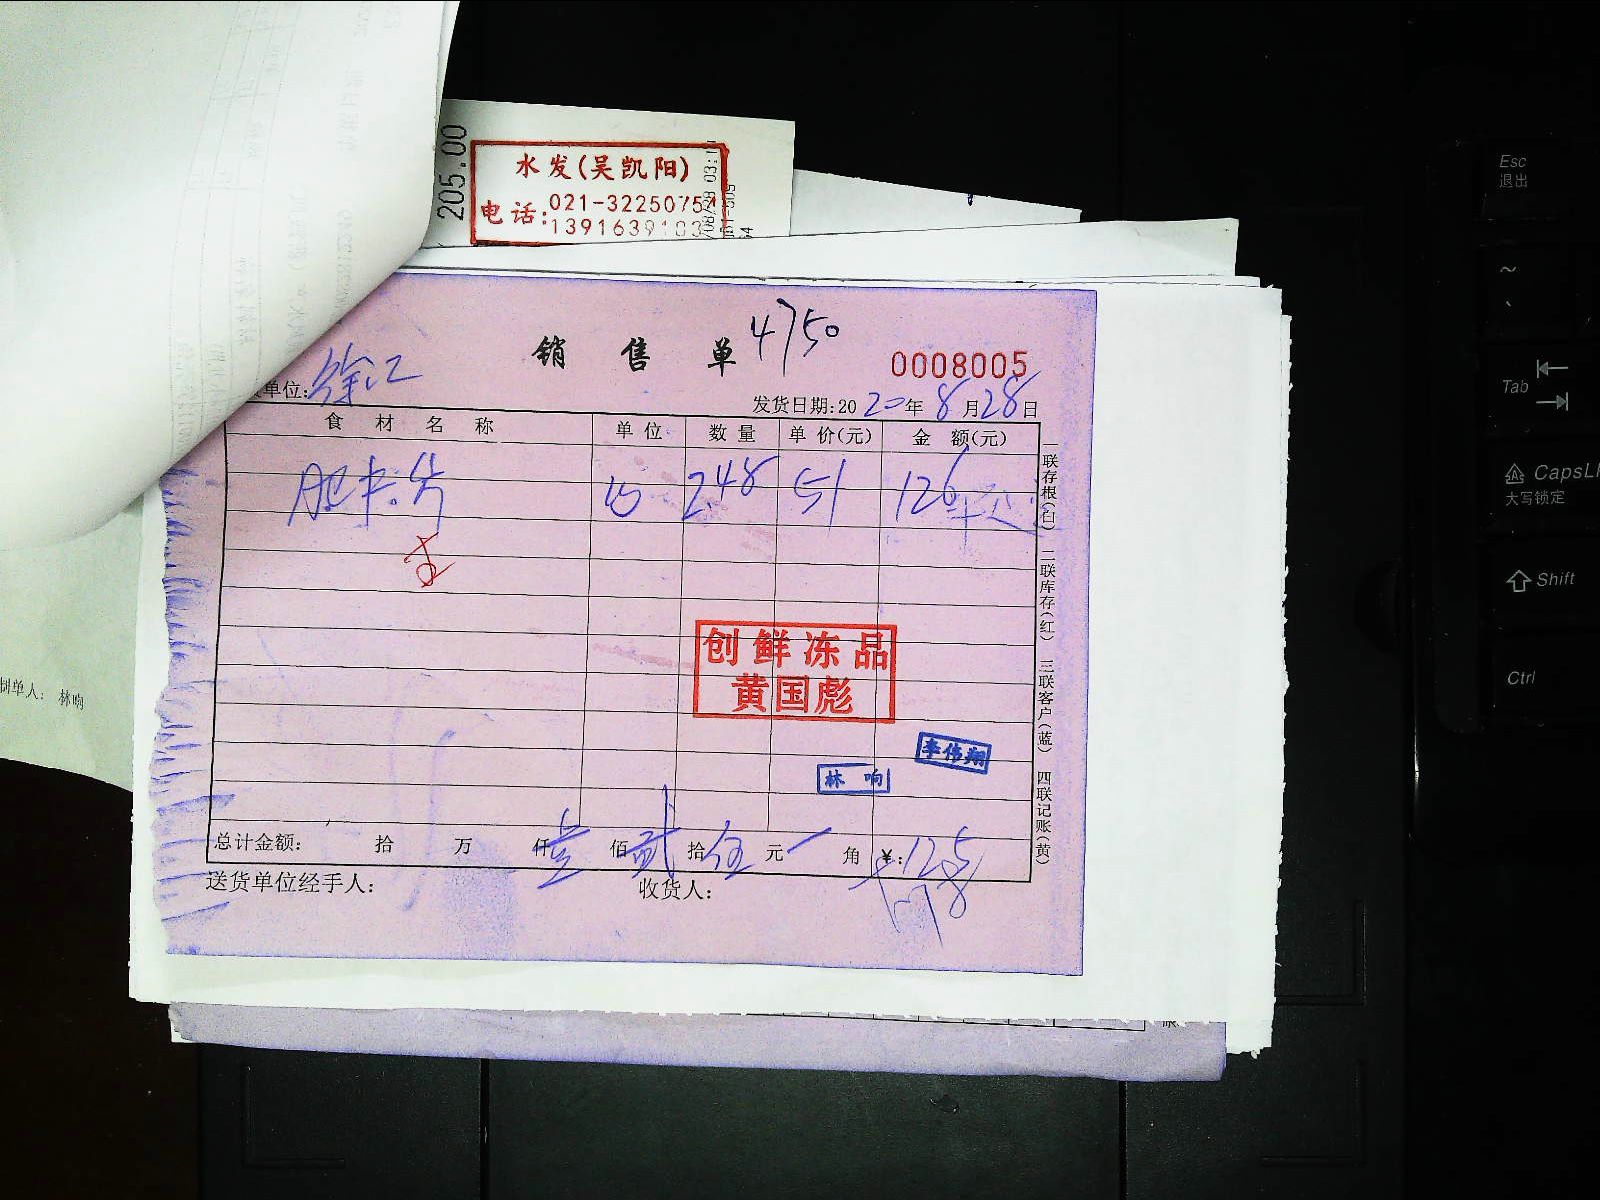 205.00
水发(吴凯阳)
电话:021-3225075
1391639103
销售单 4750
0008005
单位: 徐汇
发货日期:2020年8月28日
食材名称 单位 数量 单价(元) 金额(元)
肥牛片 2.48 51 126
一联存根(白) 二联库存(红) 三联客户(蓝) 四联记账(黄)
创鲜冻品
黄国彪
李伟翔
林响
总计金额: 拾 万 仟 壹 佰 贰 拾 伍 元 角 ¥: 125
送货单位经手人: 收货人:
单人: 林响
Esc
退出
~
Tab
CapsL
大写锁定
Shift
Ctrl